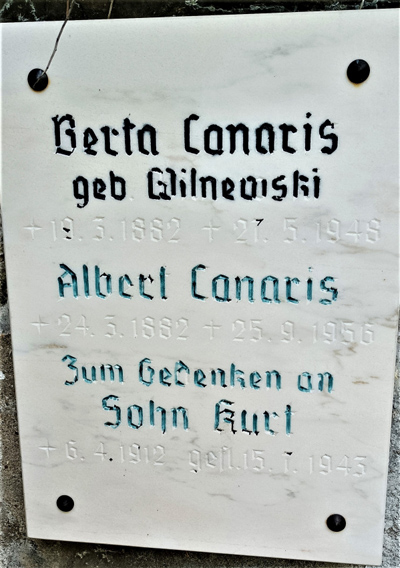 Berta Canaris
geb Wilnewski
+ 19.3.1882 + 21.5.1948
Albert Canaris
+ 24.3.1882 + 25.9.1956
Zum Gedenken an
Sohn Kurt
+ 6.4.1912 gefl.15.1.1943